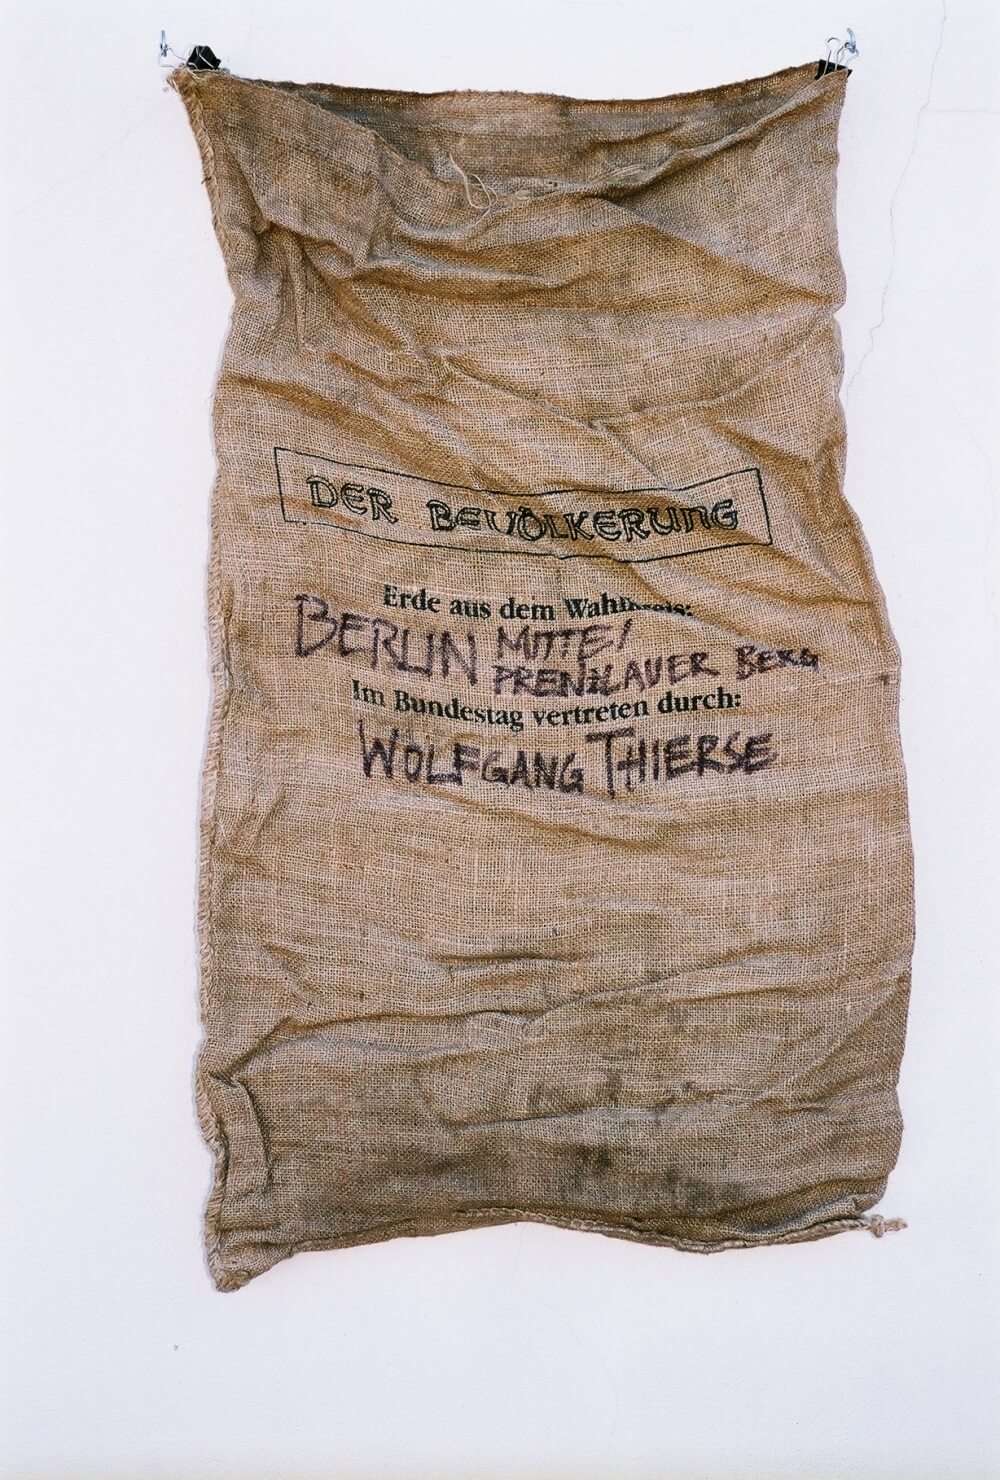 DER BEVÖLKERUNG
Erde aus dem Wahlkreis:
BERLIN MITTE/
PRENZLAUER BERG
Im Bundestag vertreten durch:
WOLFGANG THIERSE